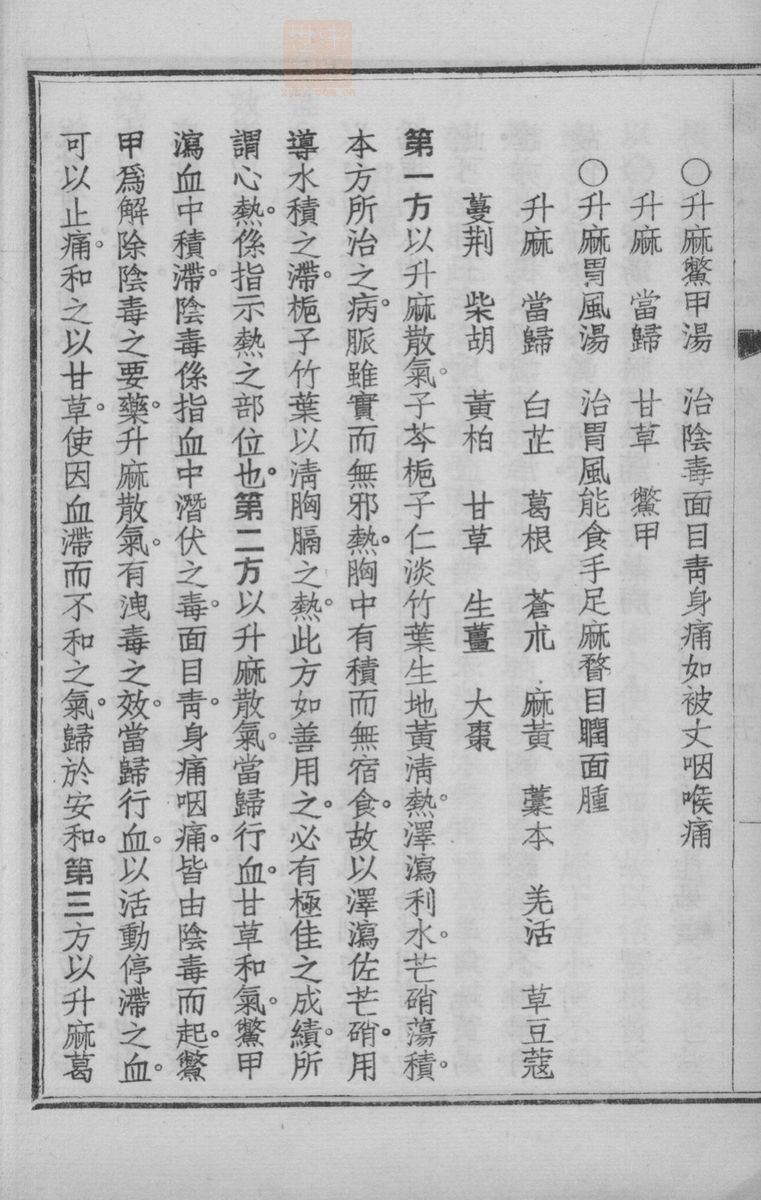 ○升麻鱉甲湯　治陰毒面目靑身痛如被丈咽喉痛
升麻　當歸　甘草　鱉甲
○升麻胃風湯　治胃風能食手足麻瞀目瞤面腫
升麻　當歸　白芷　葛根　蒼朮　麻黃　藁本　羌活　草豆蔻
蔓荆　柴胡　黃柏　甘草　生薑　大棗
第一方以升麻散氣。子芩梔子仁淡竹葉生地黃淸熱。澤瀉利水。芒硝蕩積。
本方所治之病。脈雖實而無邪熱。胸中有積而無宿食。故以澤瀉佐芒硝。用
導水積之滯。梔子竹葉以淸胸膈之熱。此方如善用之。必有極佳之成績。所
謂心熱。係指示熱之部位也。第二方以升麻散氣。當歸行血。甘草和氣。鱉甲
瀉血中積滯。陰毒係指血中潛伏之毒。面目靑。身痛咽痛。皆由陰毒而起。鱉
甲爲解除陰毒之要藥。升麻散氣。有洩毒之效。當歸行血。以活動停滯之血。
可以止痛。和之以甘草。使因血滯而不和之氣。歸於安和。第三方以升麻葛